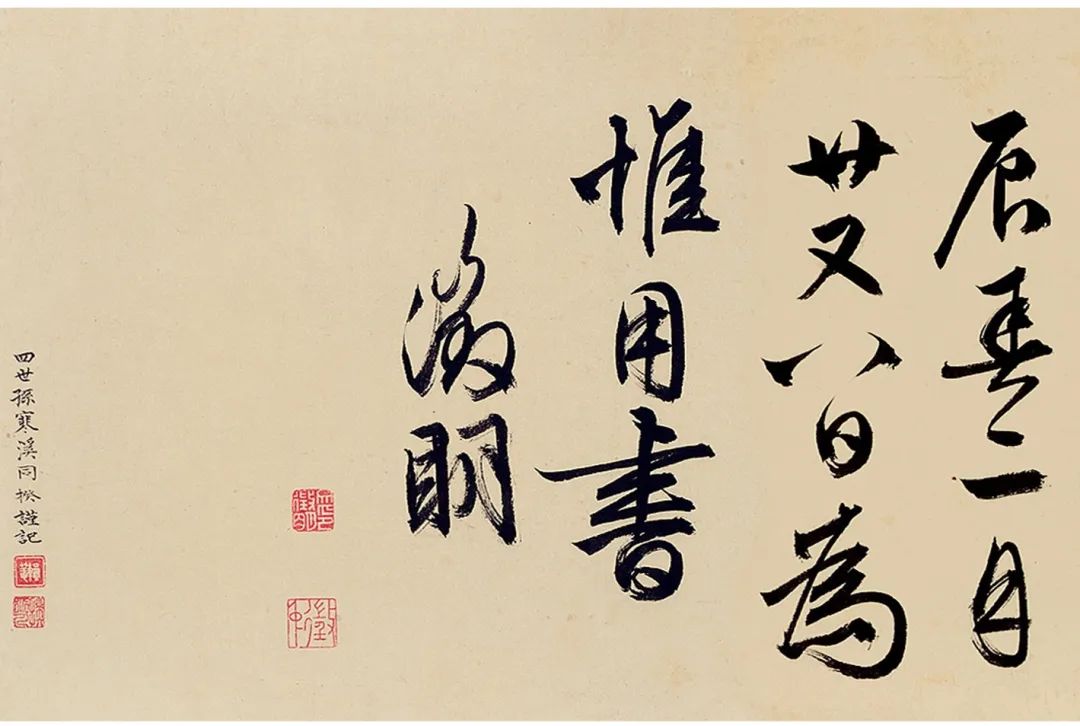 辰春二月
廿又八日為
惟用書
徵明
四世孫寒溪同揆謹記